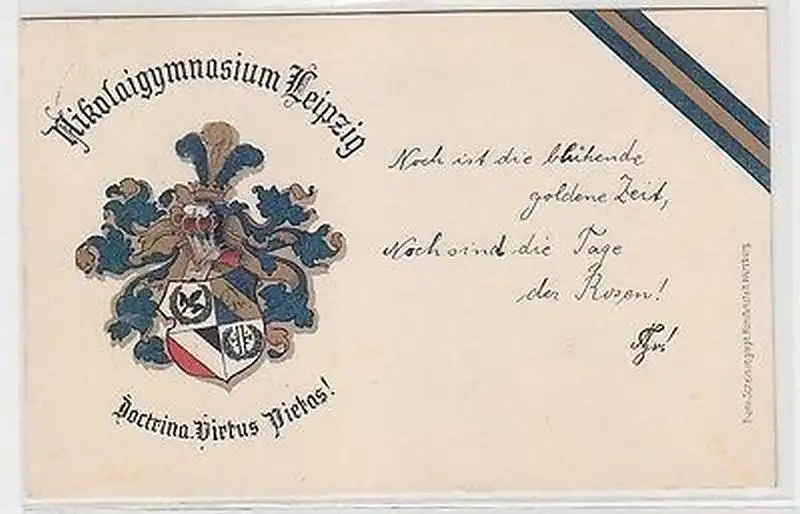 Nikolaigymnasium Leipzig
Doctrina. Virtus Pietas!
Noch ist die blühende
goldene Zeit,
Noch sind die Tage
der Rosen!